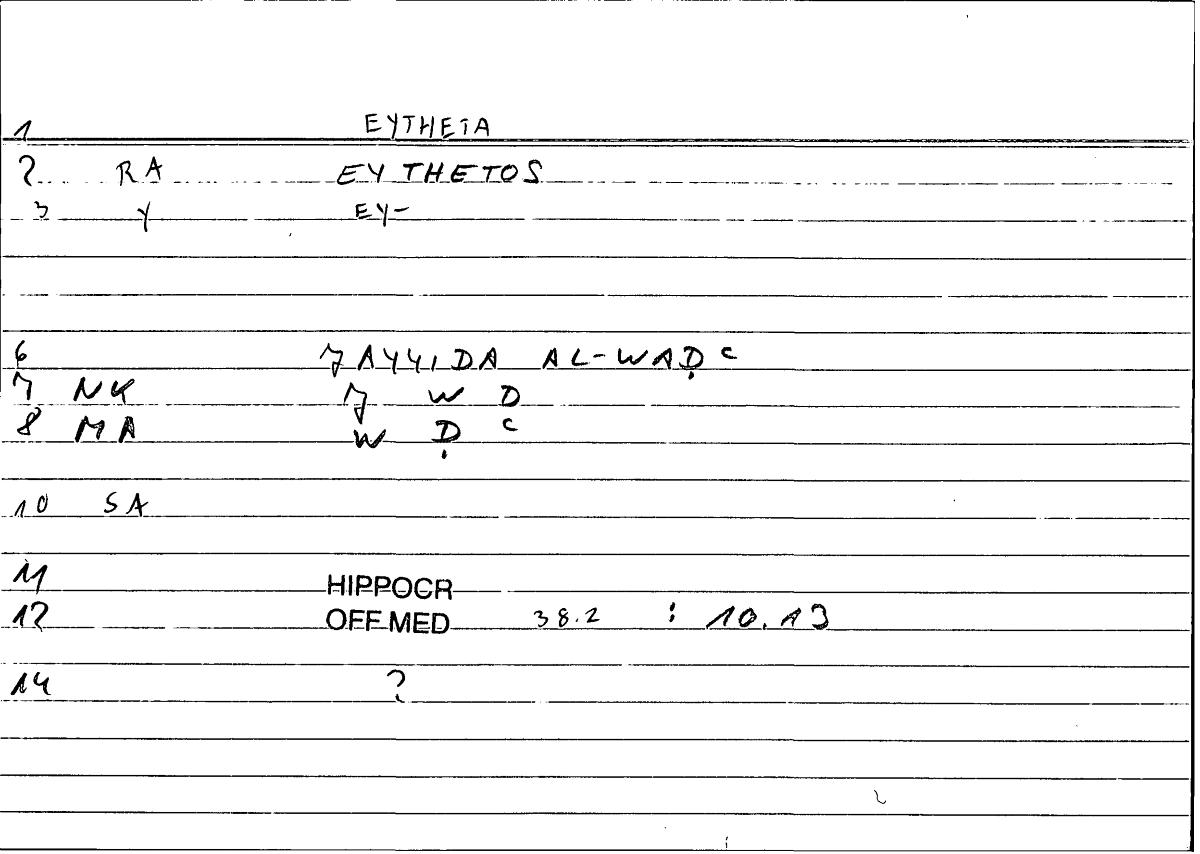 1 EYTHETA
2 RA EYTHETOS
3 Y EY-
6 ǦAYYIDA AL-WAḌʿ
7 NK Ǧ W D
8 MA W Ḍ ʿ
10 SA
11 HIPPOCR
12 OFF.MED 38.2 : 10.13
14 ?